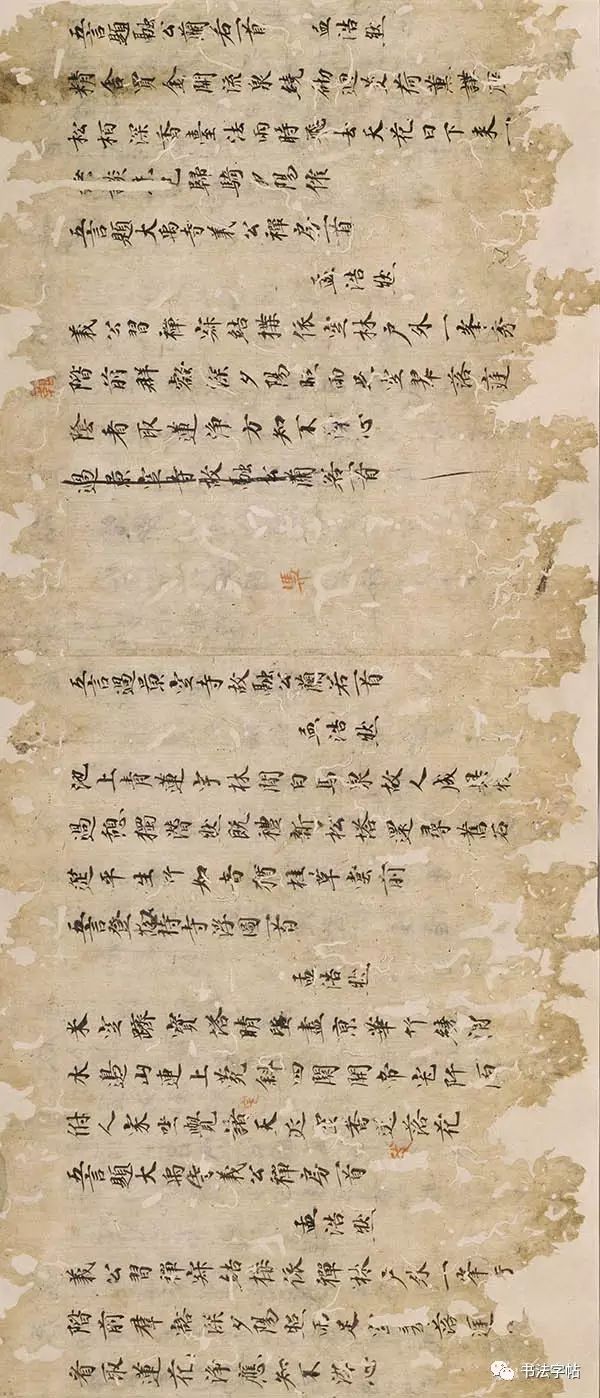 五言題融公蘭若一首 孟浩然
精舍買金開流泉繞砌迴芰荷薰講
松柏深香臺法雨時飛去天花日下来一
談未已歸騎夕陽催
五言題大禹寺義公禪房一首
孟浩然
義公習禪寂結揲依空林戶外一峯秀
階前群壑深夕陽照雨足空翠落庭
陰看取蓮淨方知不深心
過景空寺故融公蘭若一首
五言過景空寺故融公蘭若一首
孟浩然
池上青蓮宇林間白馬泉故人成異物
過憩獨潸然既禮新松塔還尋舊石
莚平生竹如音猶桂草堂前
五言登惣持寺浮圖一首
孟浩然
米空躋寶塔晴盡亰華竹繞渭
水邊山連上菀斜四關開帝宅阡陌
俯人家坐覺諸天近空香送落花
五言題大禹寺義公禪房一首
孟浩然
義公習禪寂結極依禪林戶外一峯
階前羣壑深夕陽照雨足落庭
看取蓮花淨應知不染心
书法字帖